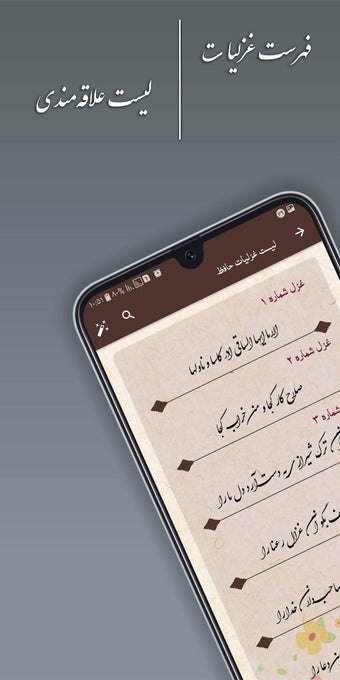 فهرست غزلیات
لیست علاقه‌مندی
۱۰:۵۱ ۸۰%
لیست غزلیات حافظ
غزل شماره ۱
الا یا ایها الساقی ادر کاسا و ناولها
غزل شماره ۲
صلاح کار کجا و من خراب کجا
شماره ۳
ترک شیرازی به دست آرد دل ما را
بگو آن غزال رعنا را
صاحب دلان خدا را
دعا را